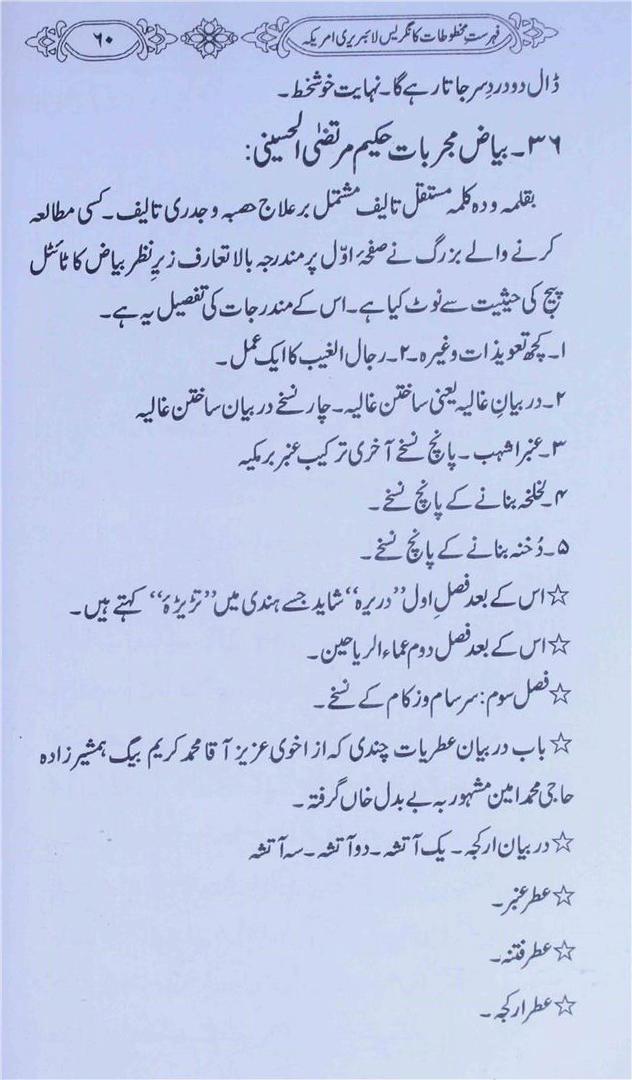 فہرستِ مخطوطات کانگریس لائبریری امریکہ
۶۰
ڈال دو دردِ سر جاتا رہے گا۔ نہایت خوشخط۔
۳۶۔ بیاض مجربات حکیم مرتضیٰ الحسینی:
بقلمہ و دہ کلمہ مستقل تالیف مشتمل بر علاج حصبہ و جدری تالیف۔ کسی مطالعہ
کرنے والے بزرگ نے صفحۂ اوّل پر مندرجہ بالا تعارف زیرِ نظر بیاض کا ٹائٹل
پیج کی حیثیت سے نوٹ کیا ہے۔ اس کے مندرجات کی تفصیل یہ ہے۔
۱۔ کچھ تعویذات وغیرہ۔ ۲۔ رجال الغیب کا ایک عمل۔
۲۔ در بیانِ غالیہ یعنی ساختن غالیہ۔ چار نسخے در بیان ساختن غالیہ
۳۔ عنبر اشہب۔ پانچ نسخے آخری ترکیب عنبر برمکیہ
۴۔ لخلخہ بنانے کے پانچ نسخے۔
۵۔ دُخنہ بنانے کے پانچ نسخے۔
☆ اس کے بعد فصلِ اول ”دریرہ“ شاید جسے ہندی میں ”تڑیڑہ“ کہتے ہیں۔
☆ اس کے بعد فصل دوم عماء الریاحین۔
☆ فصل سوم: سرسام و زکام کے نسخے۔
☆ باب در بیان عطریات چندی کہ از اخوی عزیز آقا محمد کریم بیگ ہمشیر زادہ
حاجی محمد امین مشہور بہ بے بدل خاں گرفتہ۔
☆ در بیان ارکجہ۔ یک آتشہ۔ دو آتشہ۔ سہ آتشہ
☆ عطر عنبر۔
☆ عطر فتنہ۔
☆ عطر ارکجہ۔